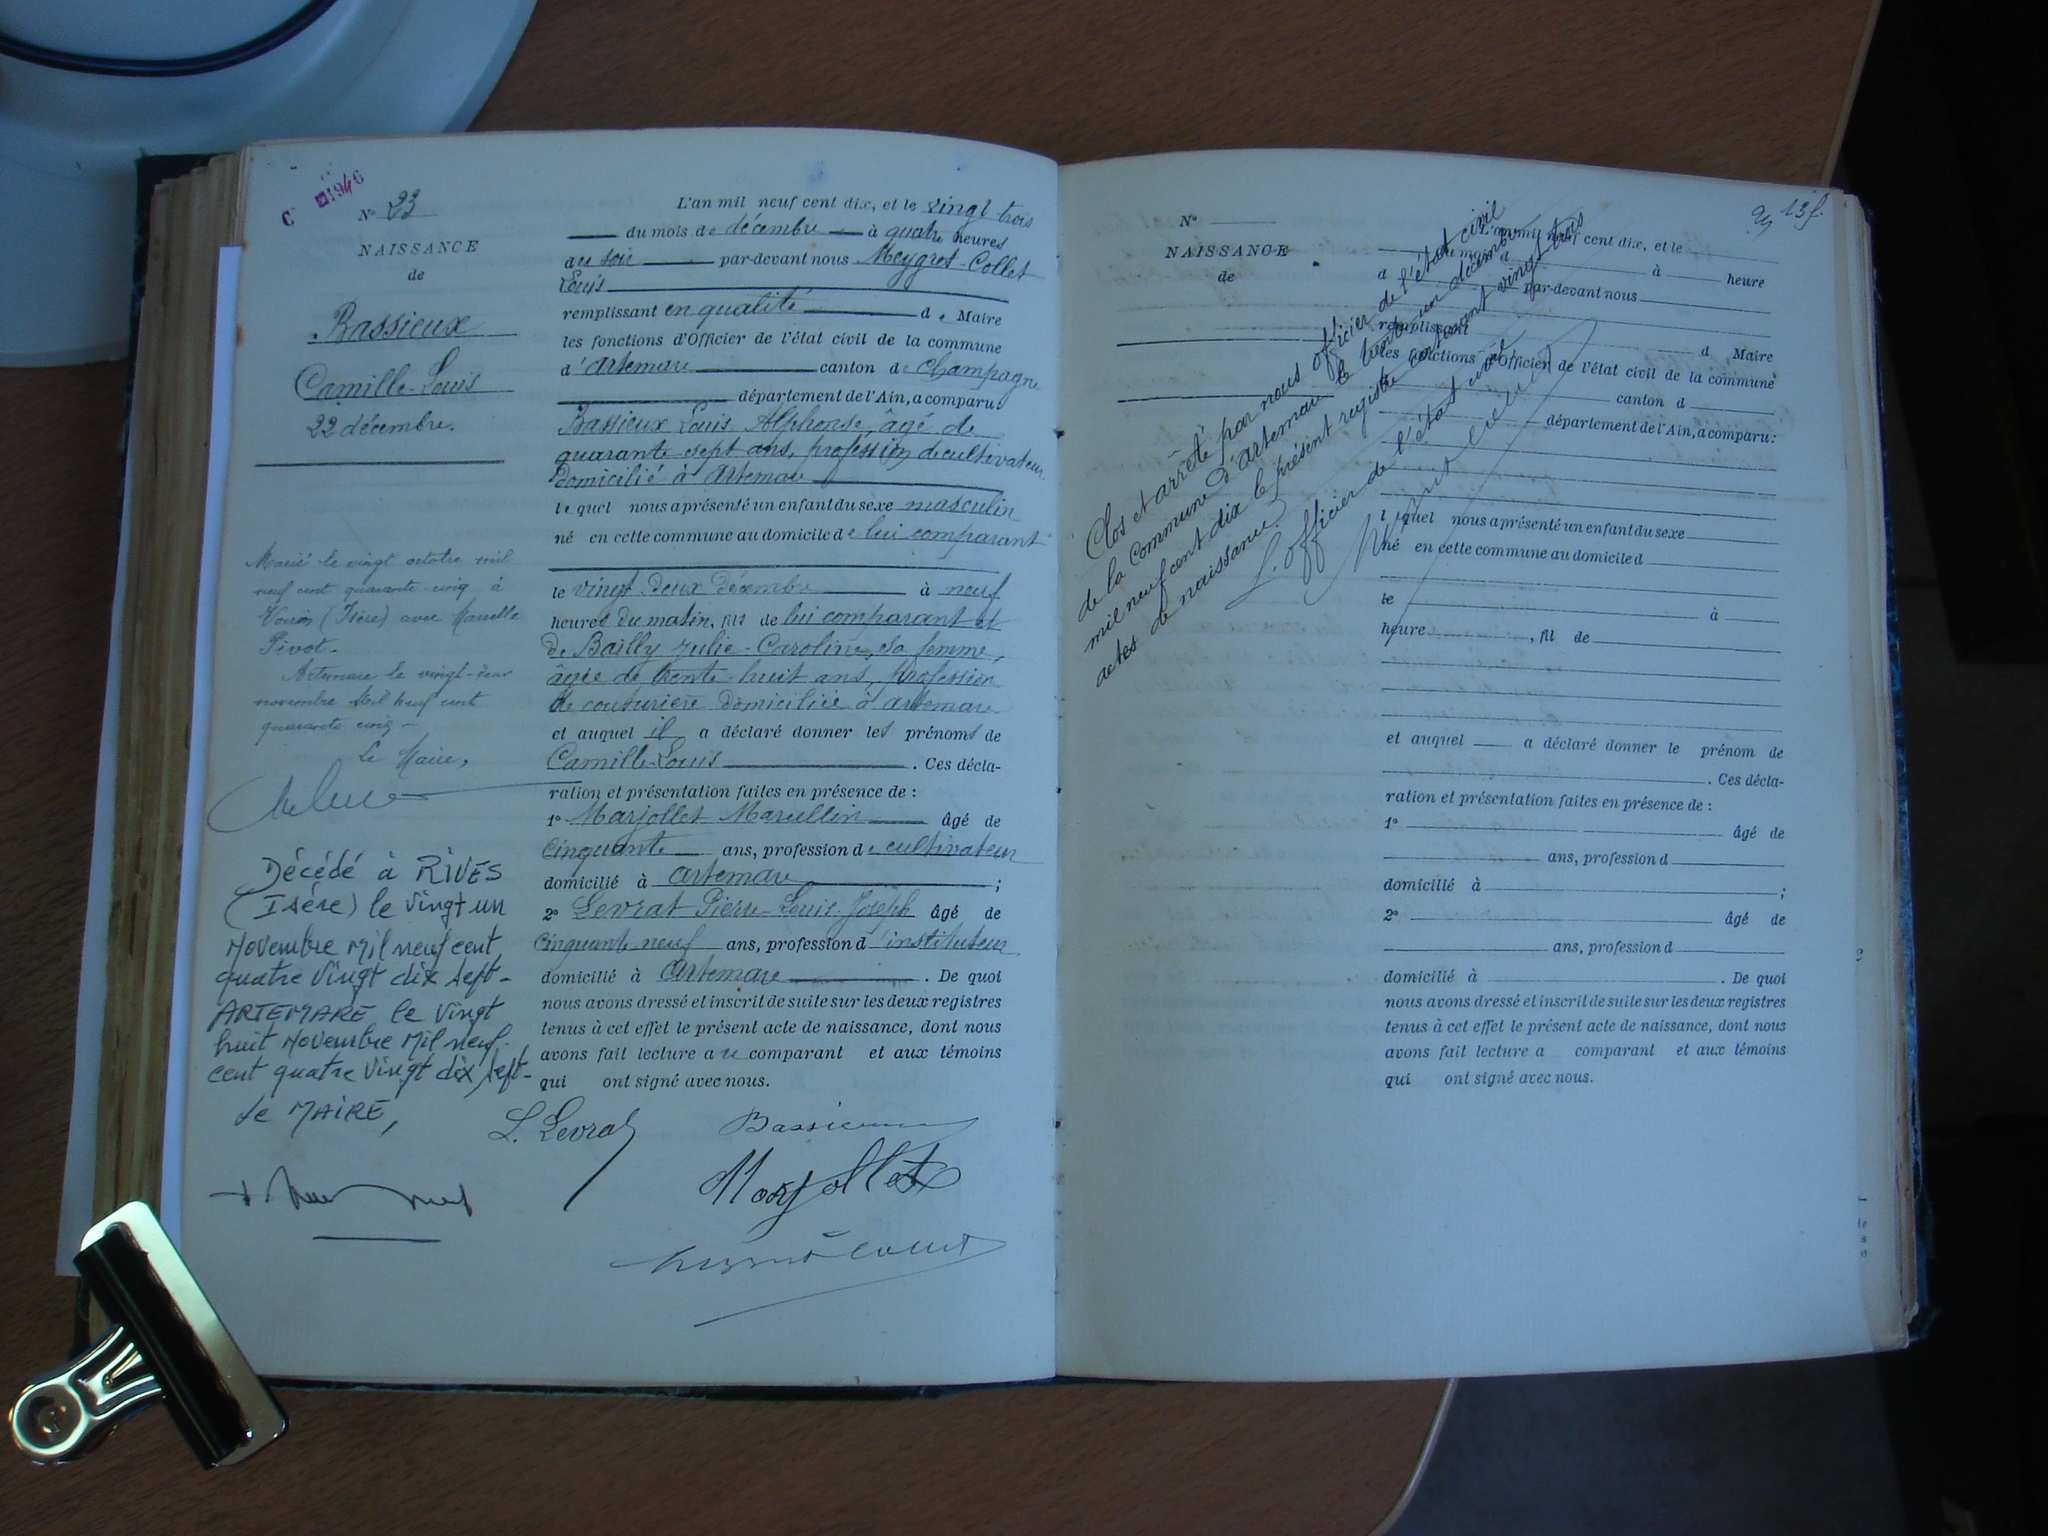 C 1946
N° 23
NAISSANCE
de
Bassieux
Camille-Louis
22 décembre.
Marié le vingt octobre mil
neuf cent quarante-cinq à
(Isère) avec Marcelle
Pivot.
Artemare le vingt-
novembre Mil neuf cent
quarante cinq
Le Maire,
Décédé à RIVES
(Isère) le vingt un
Novembre Mil neuf cent
quatre vingt dix sept-
ARTEMARE le vingt
huit Novembre Mil neuf
cent quatre vingt dix sept-
Le MAIRE,
L'an mil neuf cent dix, et le vingt trois
du mois de décembre à quatre heures
au soir par-devant nous Meygret-Collet
Louis
remplissant en qualité de Maire
les fonctions d'Officier de l'état civil de la commune
d'Artemare canton de Champagne
département de l'Ain, a comparu:
Bassieux Louis Alphonse, âgé de
quarante-sept ans, profession de cultivateur
domicilié à Artemare
lequel nous a présenté un enfant du sexe masculin
né en cette commune au domicile de lui comparant
le vingt deux Décembre à neuf
heures du matin, fils de lui comparant et
de Bailly Julie-Caroline, sa femme,
âgée de trente-huit ans, profession
de couturière domiciliée à Artemare
et auquel il a déclaré donner les prénoms de
Camille-Louis . Ces décla-
ration et présentation faites en présence de :
1° Marjollet Marcellin âgé de
Cinquante ans, profession de cultivateur
domicilié à Artemare ;
2° Levrat Pierre-Louis-Joseph âgé de
Cinquante neuf ans, profession d'instituteur
domicilié à Artemare . De quoi
nous avons dressé et inscrit de suite sur les deux registres
tenus à cet effet le présent acte de naissance, dont nous
avons fait lecture au comparant et aux témoins
qui ont signé avec nous.
L. Levrat
Bassieux
Marjollet
13 f.
N°
NAISSANCE
de
L'an mil neuf cent dix, et le
d du mois d à heure
par-devant nous
remplissant d Maire
les fonctions d'Officier de l'état civil de la commune
d canton d
département de l'Ain, a comparu:
l quel nous a présenté un enfant du sexe
né en cette commune au domicile d
le à
heure , fil de
et auquel a déclaré donner le prénom de
. Ces décla-
ration et présentation faites en présence de :
1° âgé de
ans, profession d
domicilié à ;
2° âgé de
ans, profession d
domicilié à . De quoi
nous avons dressé et inscrit de suite sur les deux registres
tenus à cet effet le présent acte de naissance, dont nous
avons fait lecture a comparant et aux témoins
qui ont signé avec nous.
Clos et arrêté par nous officier de l'état civil
de la commune d'Artemare le trente un décembre
mil neuf cent dix le présent registre contenant vingt trois
actes de naissance.
L'officier de l'état civil